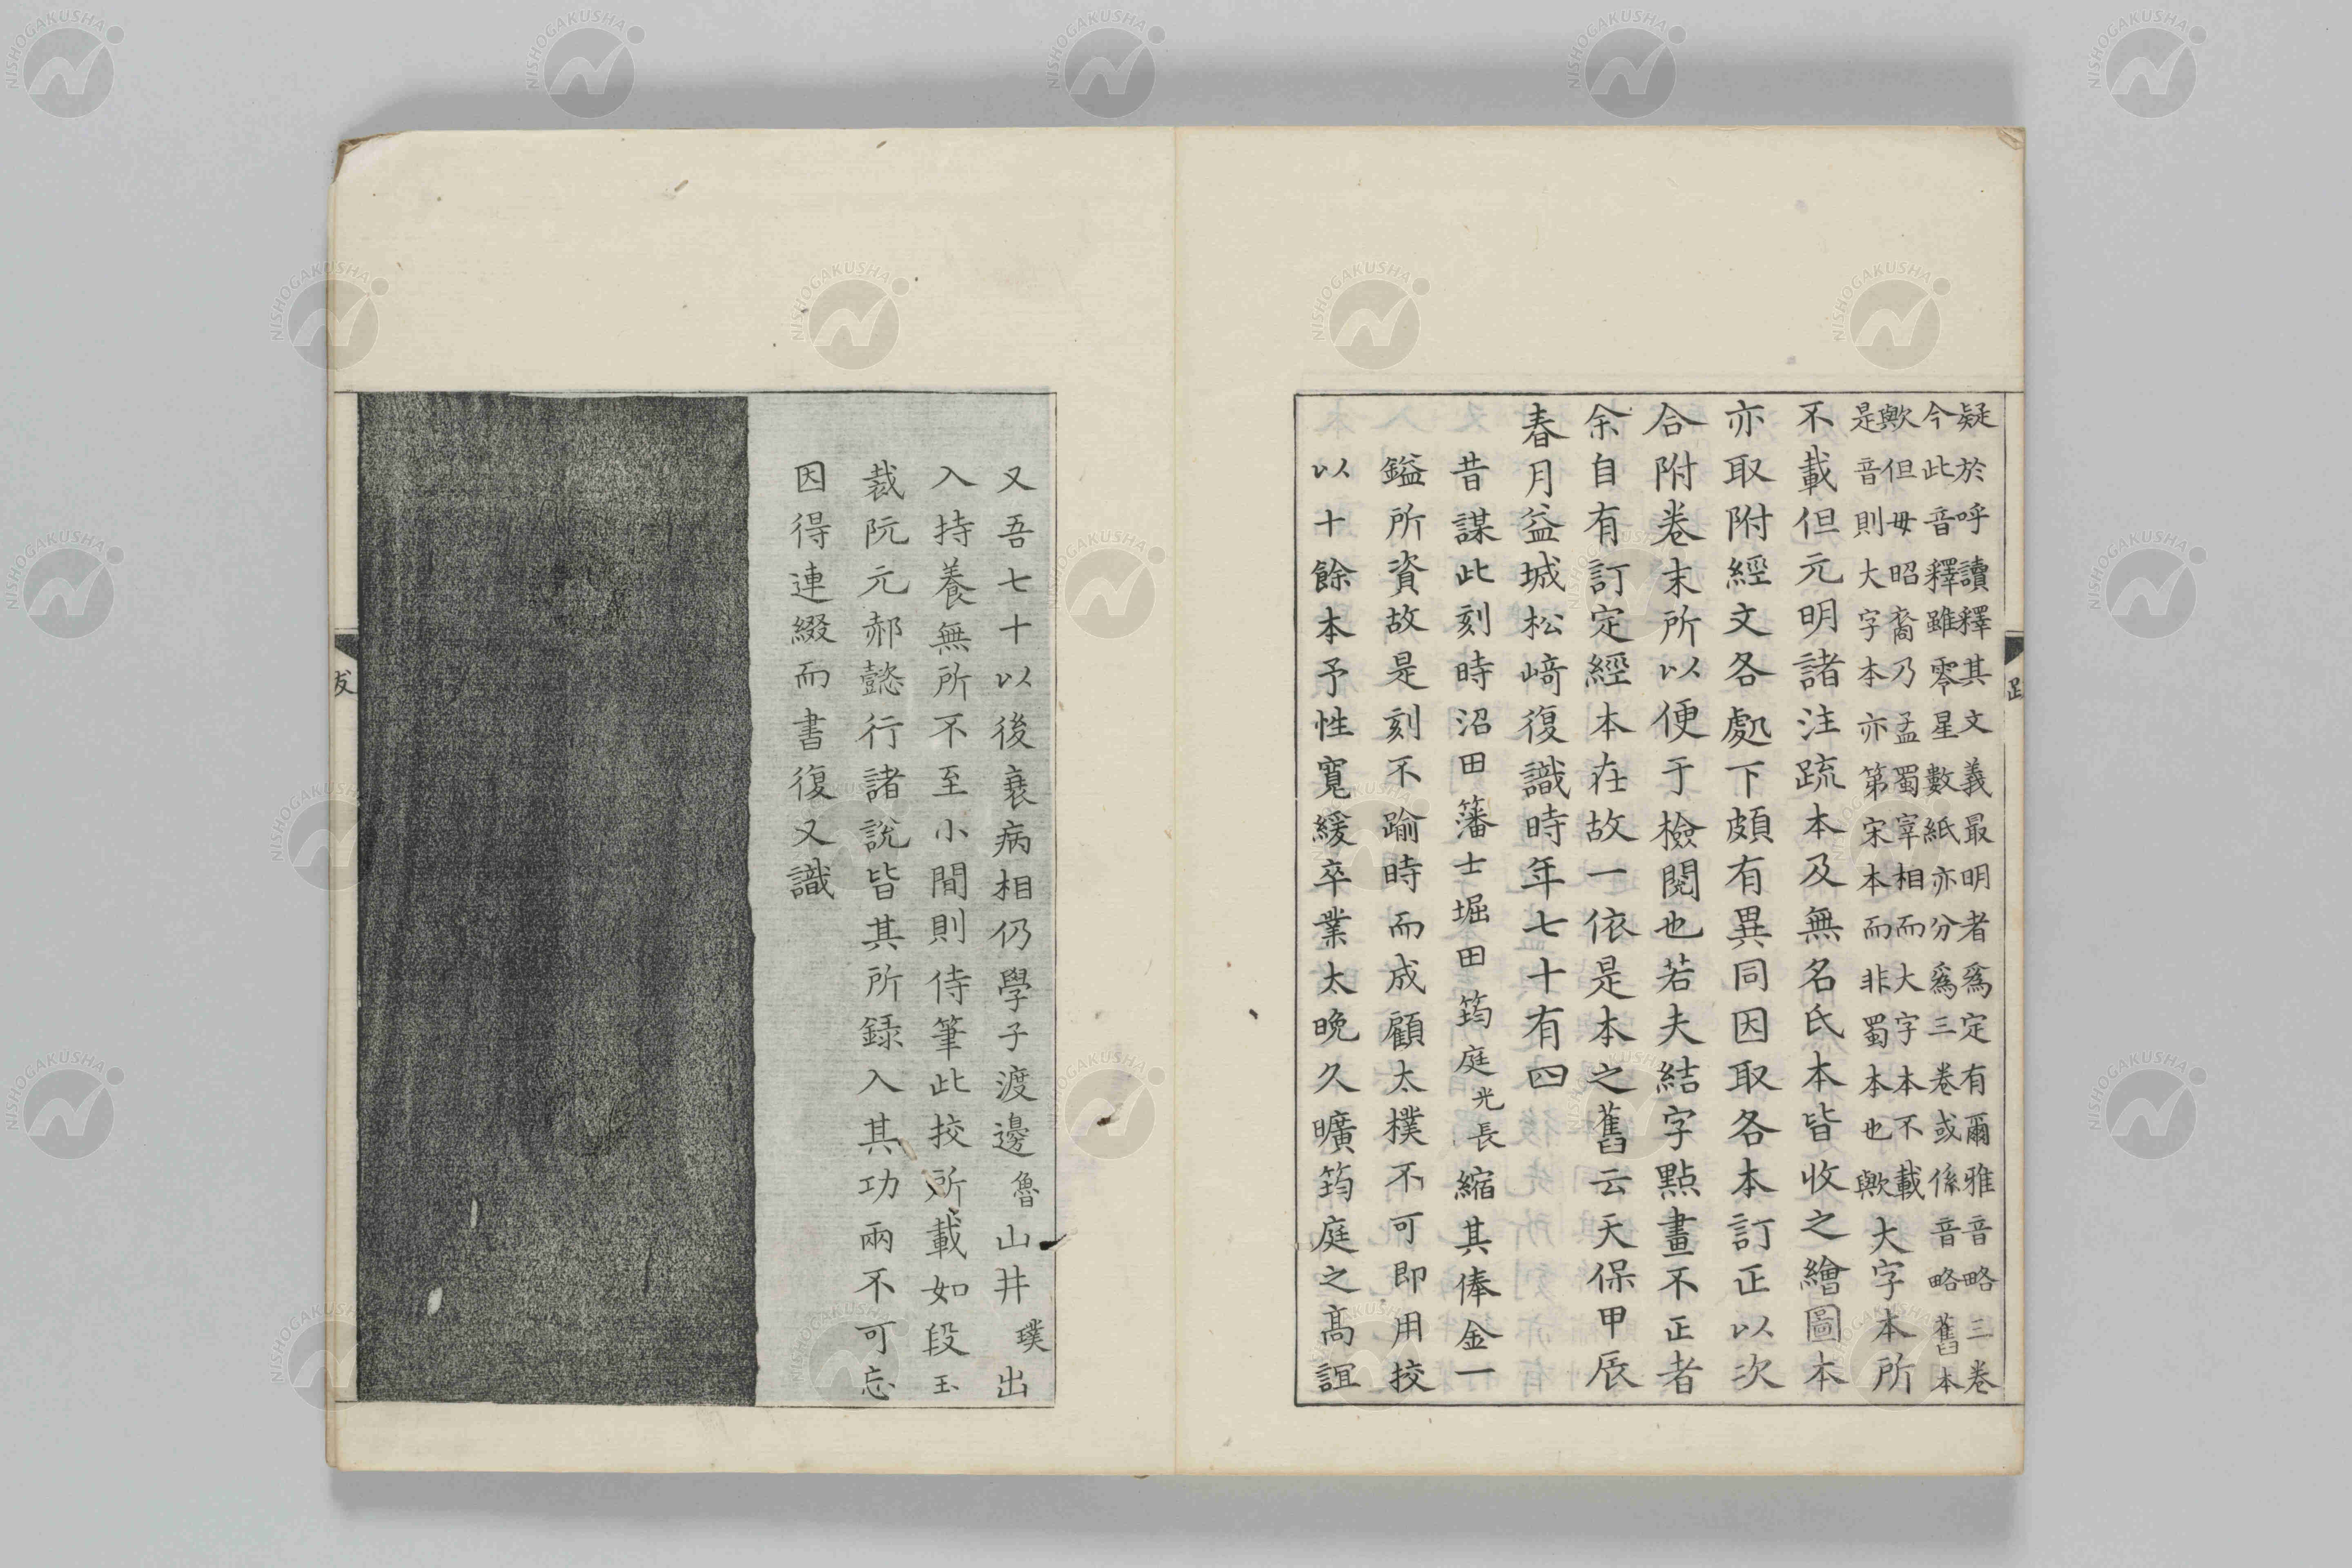 疑於呼讀釋其文義最明者爲定有爾雅音略三卷
今此音釋雖零星數紙亦分爲三卷或係音略舊本
歟但毋昭裔乃孟蜀宰相而大字本不載
是音則大字本亦第宋本而非蜀本也歟
大字本所
不載但元明諸注疏本及無名氏本皆收之繪圖本
亦取附經文各處下頗有異同因取各本訂正以次
合附卷末所以便于檢閱也若夫結字點畫不正者
余自有訂定經本在故一依是本之舊云天保甲辰
春月益城松﨑復識時年七十有四
昔謀此刻時沼田籓士堀田筠庭光長縮其俸金一
鎰所資故是刻不踰時而成顧太樸不可即用挍
以十餘本予性寬緩卒業太晚久曠筠庭之高誼
又吾七十以後衰病相仍學子渡邊魯山井璞出
入持養無所不至小間則侍筆此挍所載如段玉
裁阮元郝懿行諸說皆其所録入其功兩不可忘
因得連綴而書復又識
NISHOGAKUSHA